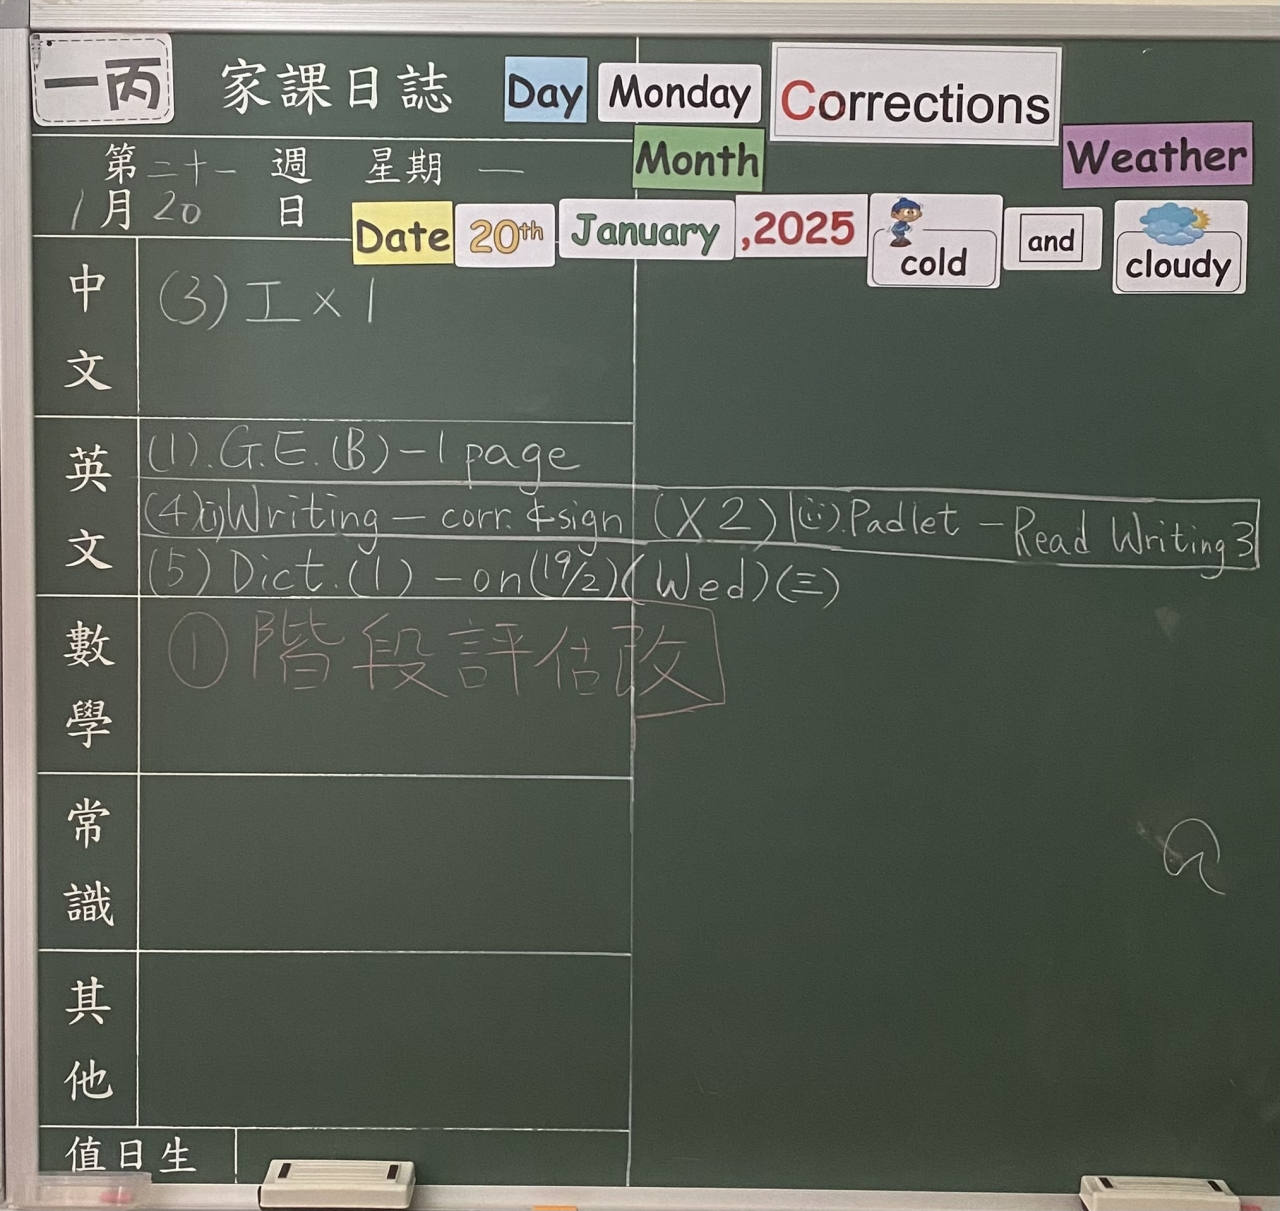 一丙 家課日誌 Day Monday Corrections
第二十一週 星期一 Month Weather
1月20日 Date 20th January ,2025 cold and cloudy
中文 (3) 工 x 1
英文 (1). G.E. (B) – 1 page
(4)(i) Writing – corr. & sign (X2) (ii). Padlet – Read Writing 3
(5) Dict. (1) – on (19/2) (Wed) (三)
數學 ① 階段評估改
常識
其他
值日生